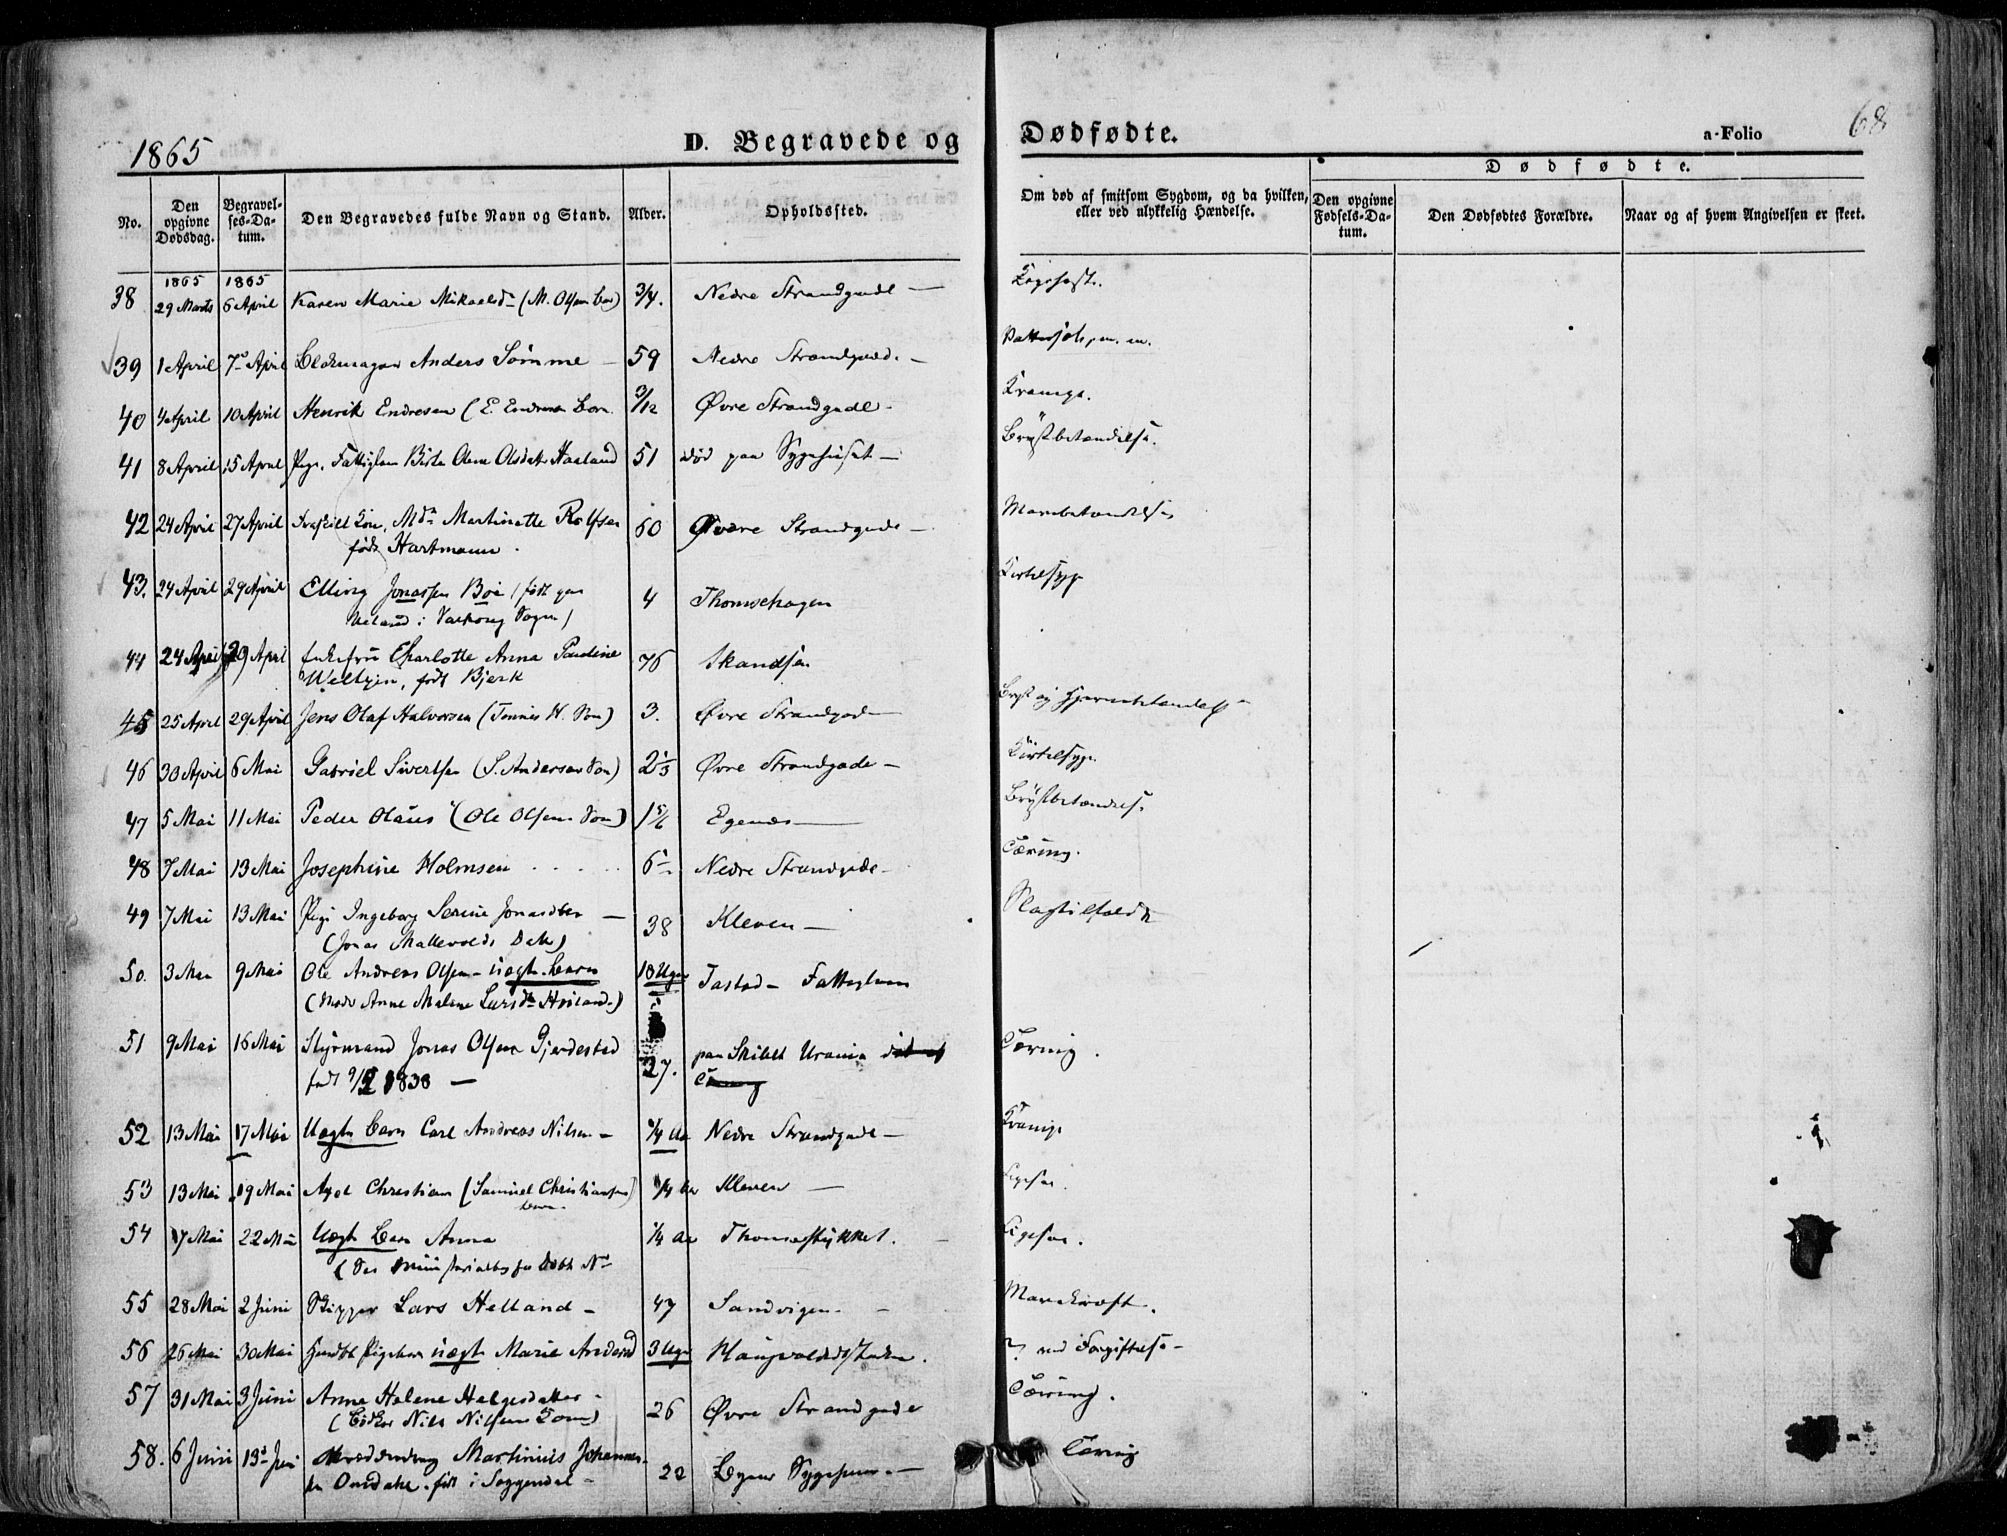 1865
D. Begravede og Dødfødte.
a-Folio 68
No.
Den opgivne Dødsdag.
Begravelses-Datum.
Den Begravedes fulde Navn og Stand.
Alder.
Opholdssted.
Om død af smitsom Sygdom, og da hvilken, eller ved ulykkelig Hændelse.
Dødfødte.
Den opgivne Fødsels-Datum.
Den Dødfødtes Forældre.
Naar og af hvem Angivelsen er skeet.
1865 1865
38 29 Marts 6 April Karen Marie Mikaelsd (M. Olsens Barn) 3/4. Nedre Strandgade Kighoste.
39 1 April 7 April Anders Sømme 59 Nedre Strandgade m. m.
40 4 April 10 April Henrik Endresen (E. Endresens Barn 3/12 Øvre Strandgade Krampe.
41 8 April 15 April Pige, Fattiglem Birte Olene Olsdatr Haaland 51 død paa Sygehuset Brystbetændelse.
42 24 April 27 April Fraskilt Kone, Md. Martinette Rolfsen 60 Øvre Strandgade Mavebetændelse
født Hartmann.
43. 24 April 29 April Elling Jonassen Bøe (født paa 4 Thomsehagen Kirtelsyge
i Varhoug Sogn)
44 24 April 29 April Enkefru Charlotte Anna Pauline 76 Skandsen
Weltzin, født Bjerk
45 25 April 29 April Jens Olaf Halvorsen (Tønnes H. Søn) 3. Øvre Strandgade Bryst og Hjernebetændelse
46 30 April 6 Mai Gabriel Sivertsen (S. Andersens Søn) 2 1/3 Øvre Strandgade Kirtelsyge
47 5 Mai 11 Mai Peder Olaus (Ole Olsens Søn) 1 5/6 Egenæs Brystbetændelse
48 7 Mai 13 Mai Josephine Holmsen 6 Nedre Strandgade Tæring.
49 7 Mai 13 Mai Pige Ingeborg Serine Jonasdtr 38 Kleven Slagtilfælde
(Jonas Mallevolds Datr)
50. 3 Mai 9 Mai Ole Andreas Olsen uægte Barn 10 Uger Tastad Fattiglem
(Moder Anne Malene Larsdtr Høiland)
51 9 Mai 16 Mai Styrmand Jonas Olsen Gjerdestad 27. paa Skibet Urania død af Tæring.
født 9/2 1838 Tæring
52 13 Mai 17 Mai Uægte Barn Carl Andreas Nilsen 1/4 Aar Nedre Strandgade Krampe
53 13 Mai 19 Mai Axel Christian (Samuel Christiansens 1/4 Aar Kleven
Barn
54 17 Mai 22 Mai Uægte Barn Anna 1/4 Aar Thomasstykket.
55 28 Mai 2 Juni Skipper Lars Helland 47 Sandvigen Mavekræft.
56 26 Mai 30 Mai uægte Marie Andersd 3 Uger
57 31 Mai 3 Juni Anne Helene Helgesdatter 26 Øvre Strandgade Tæring.
(Nils Nilsens Kone)
58. 6 Juni 13 Juni Martinius Johannes- 22 Sygehuus Tæring
født i Soggendal